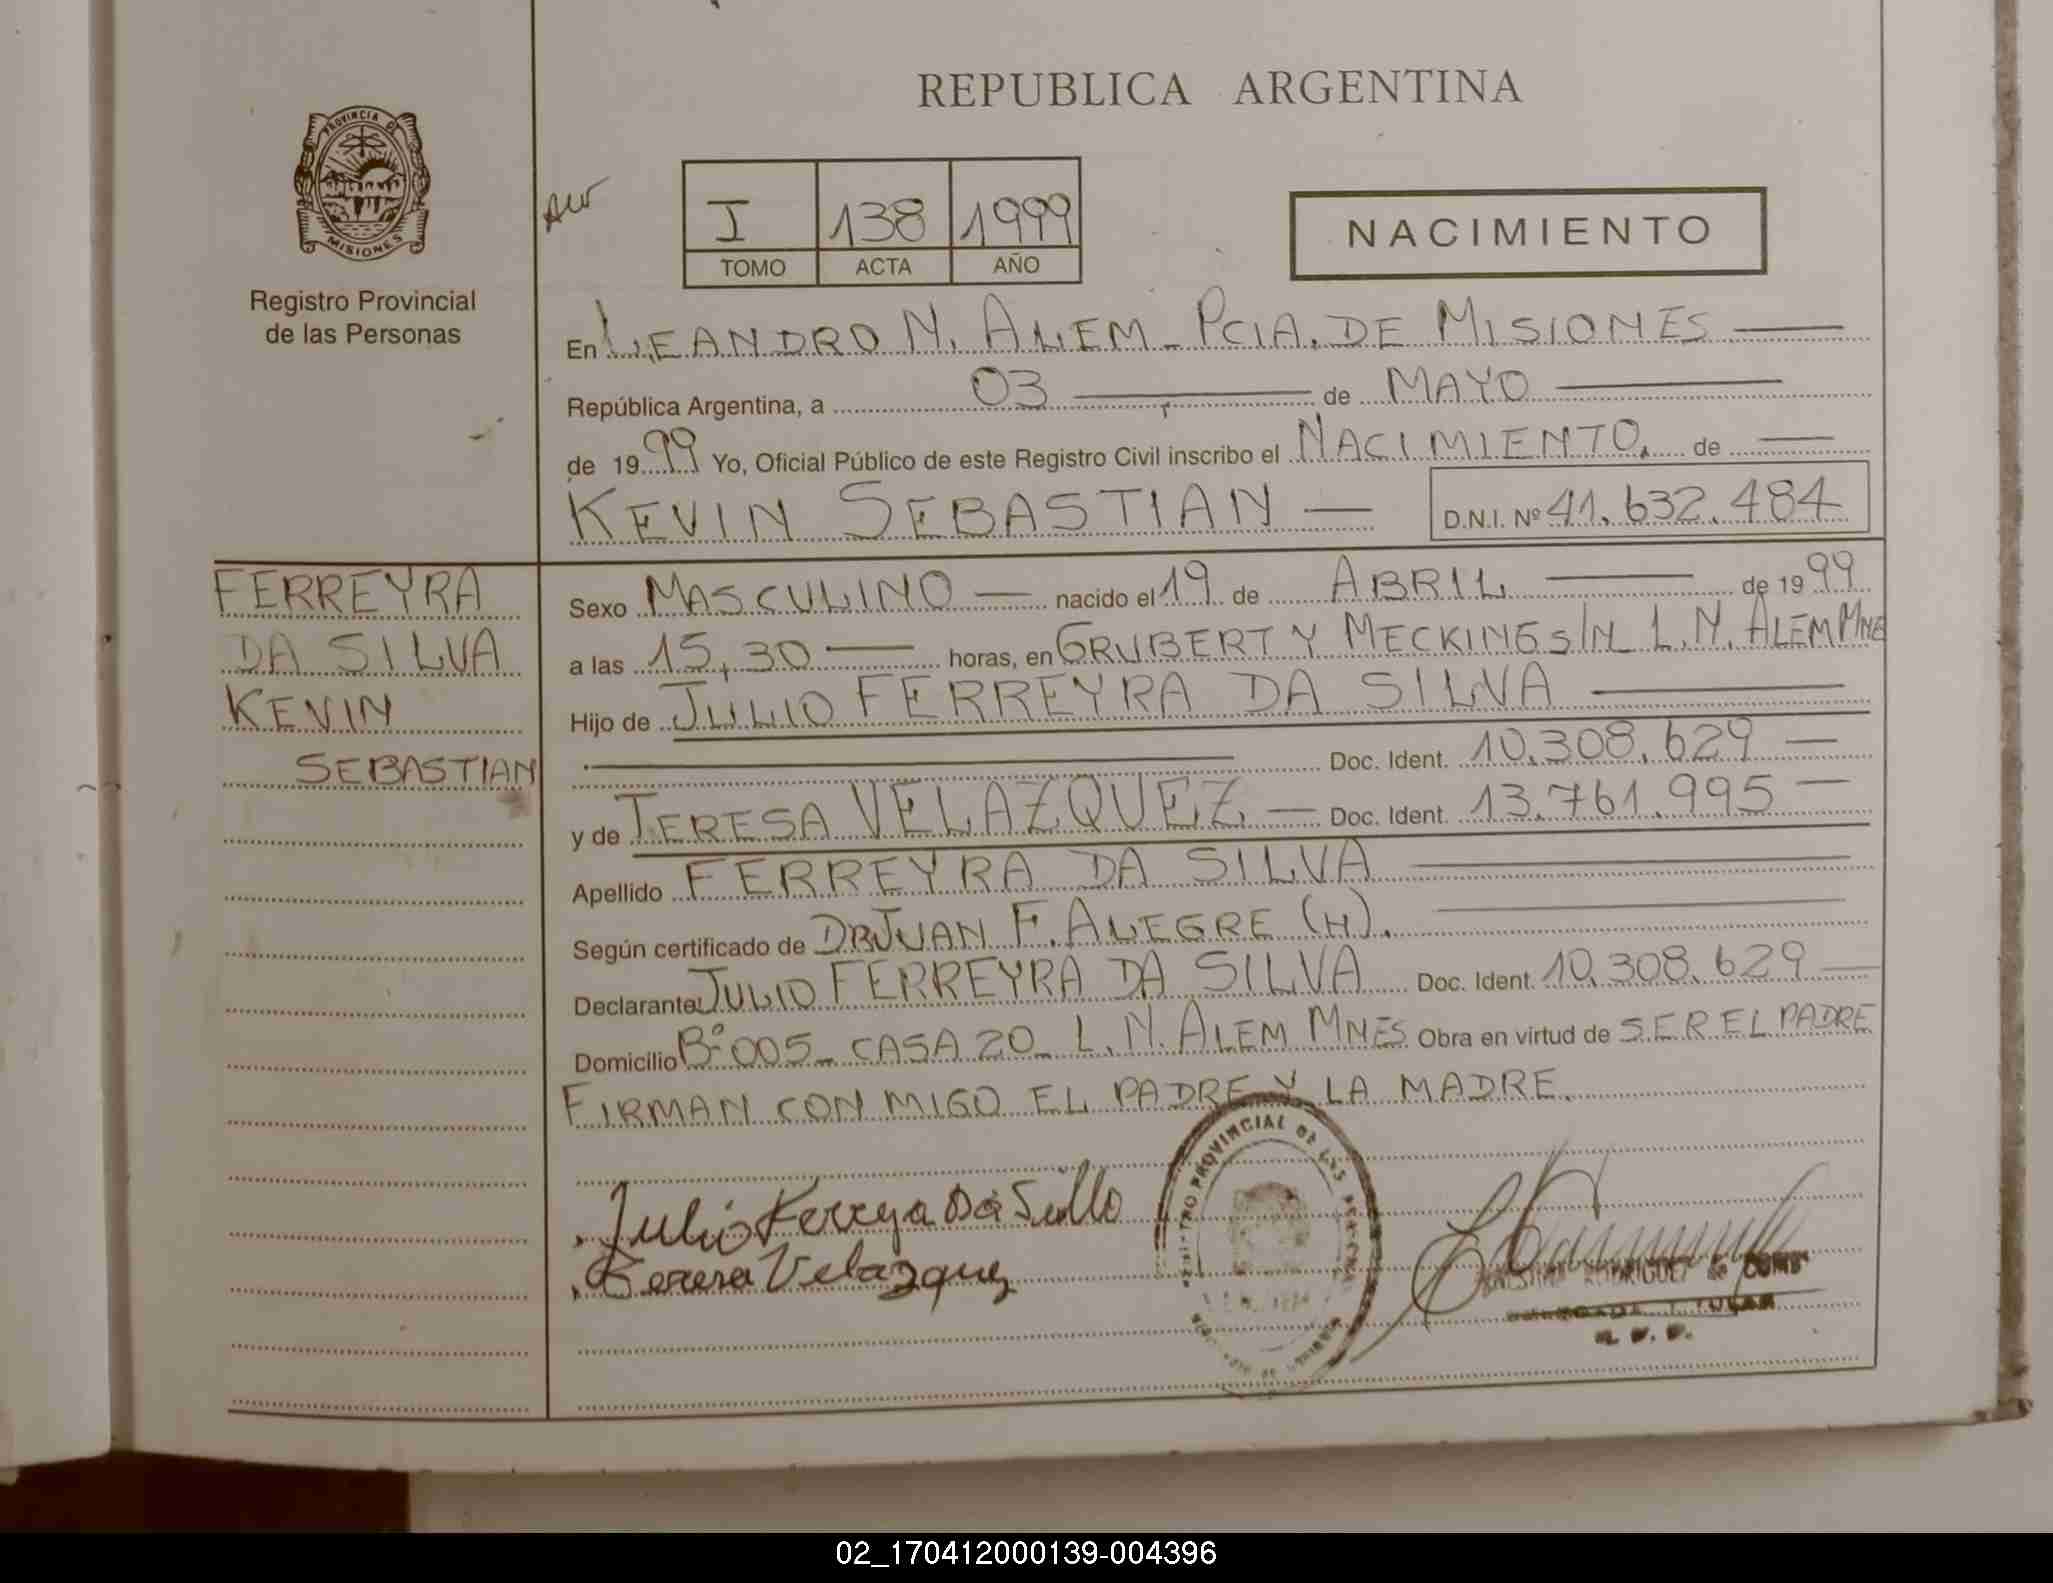 REPUBLICA ARGENTINA
PROVINCIA DE
MISIONES
Registro Provincial
de las Personas
I 138 1999
TOMO ACTA AÑO
NACIMIENTO
En LEANDRO N. ALEM - PCIA. DE MISIONES
República Argentina, a 03 de MAYO
de 1999 Yo, Oficial Público de este Registro Civil inscribo el NACIMIENTO. de
KEVIN SEBASTIAN D.N.I. Nº 41.632.484
FERREYRA
DA SILVA
KEVIN
SEBASTIAN
Sexo MASCULINO nacido el 19 de ABRIL de 1999
a las 15,30 horas, en GRUBERT Y MECKING S/N L.N. ALEM MNES
Hijo de JULIO FERREYRA DA SILVA
Doc. Ident. 10.308.629
y de TERESA VELAZQUEZ Doc. Ident. 13.761.995
Apellido FERREYRA DA SILVA
Según certificado de DR JUAN F. ALEGRE (H).
Declarante JULIO FERREYRA DA SILVA Doc. Ident. 10.308.629
Domicilio Bº 005 - CASA 20 - L.N. ALEM MNES Obra en virtud de SER EL PADRE
FIRMAN CON MIGO EL PADRE Y LA MADRE.
PROVINCIAL DE LAS
Julio Ferreyra Da Silva
Teresa Velazquez
02_170412000139-004396